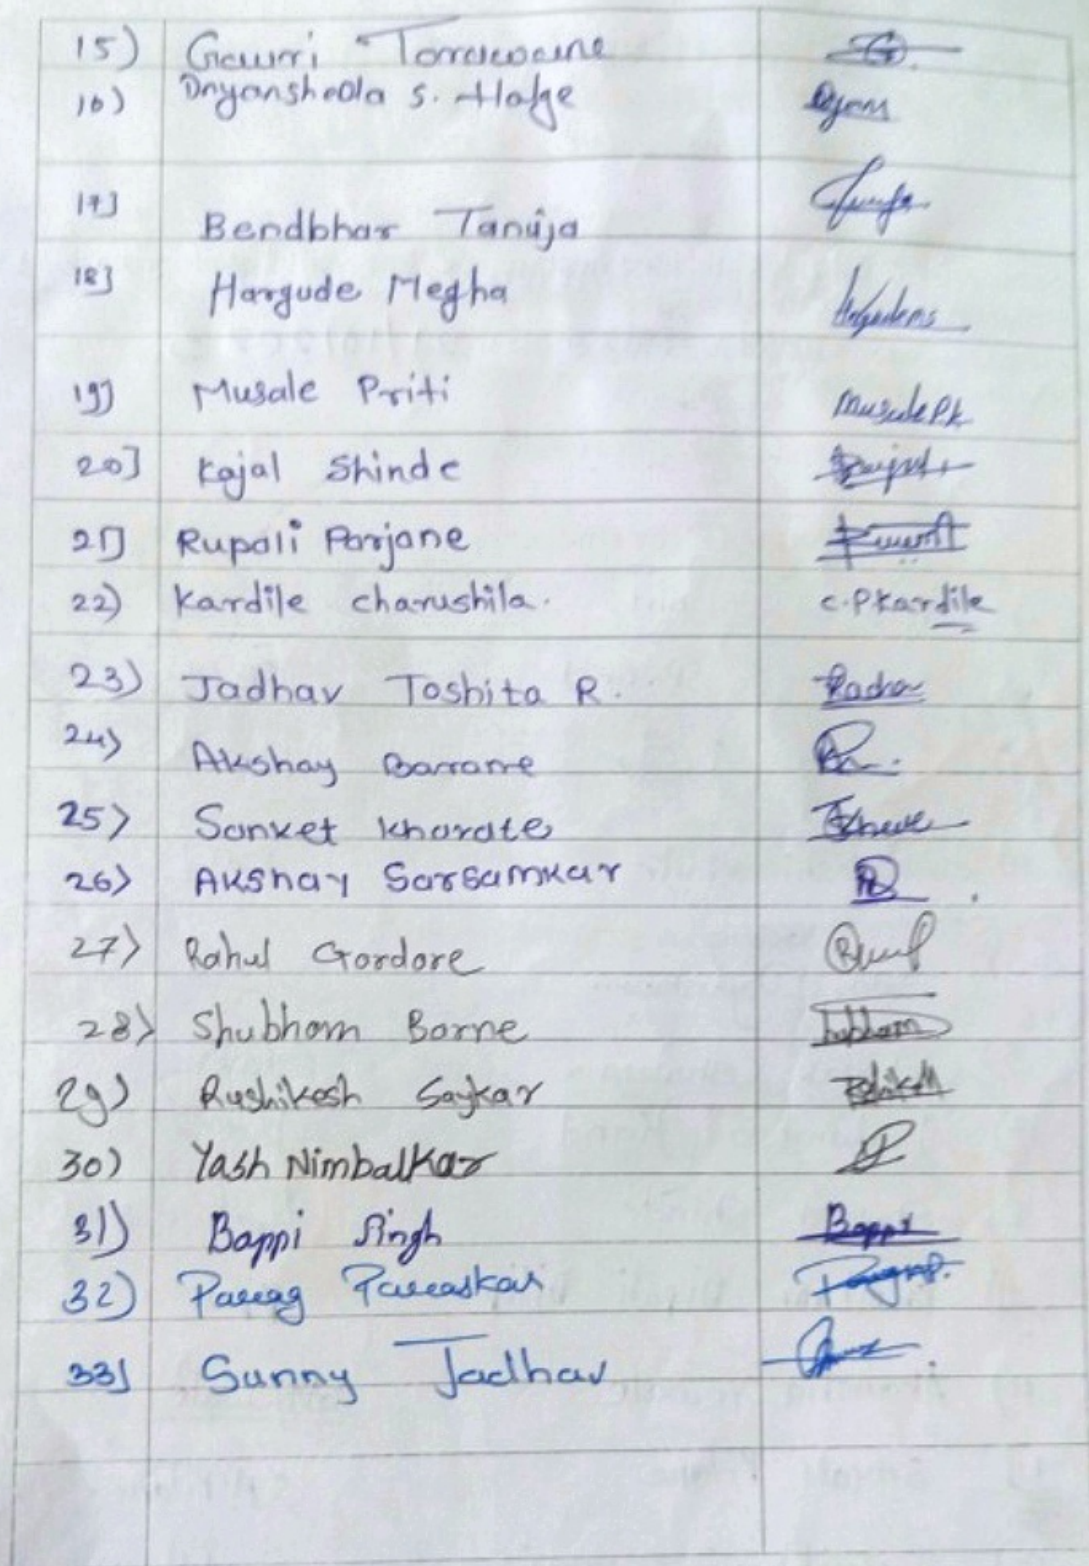 15) Gauri
16) Dnyansheola S. Halge Dyans
17] Bendbhar Tanuja
18] Hargude Megha
19] Musale Priti Musale P.k
20] Kajal Shinde
21] Rupali Parjane
22) Kardile charushila. C.P Kardile
23) Jadhav Toshita R.
24) Akshay Barame
25) Sanket Kharate
26) Akshay Sarsamkar
27) Rahul Gordore
28) Shubham Borne Shubham
29) Rushikesh Saykar
30) Yash Nimbalkar
31) Bappi Singh Bappi
32) Parag Paraskar
33) Sunny Jadhav